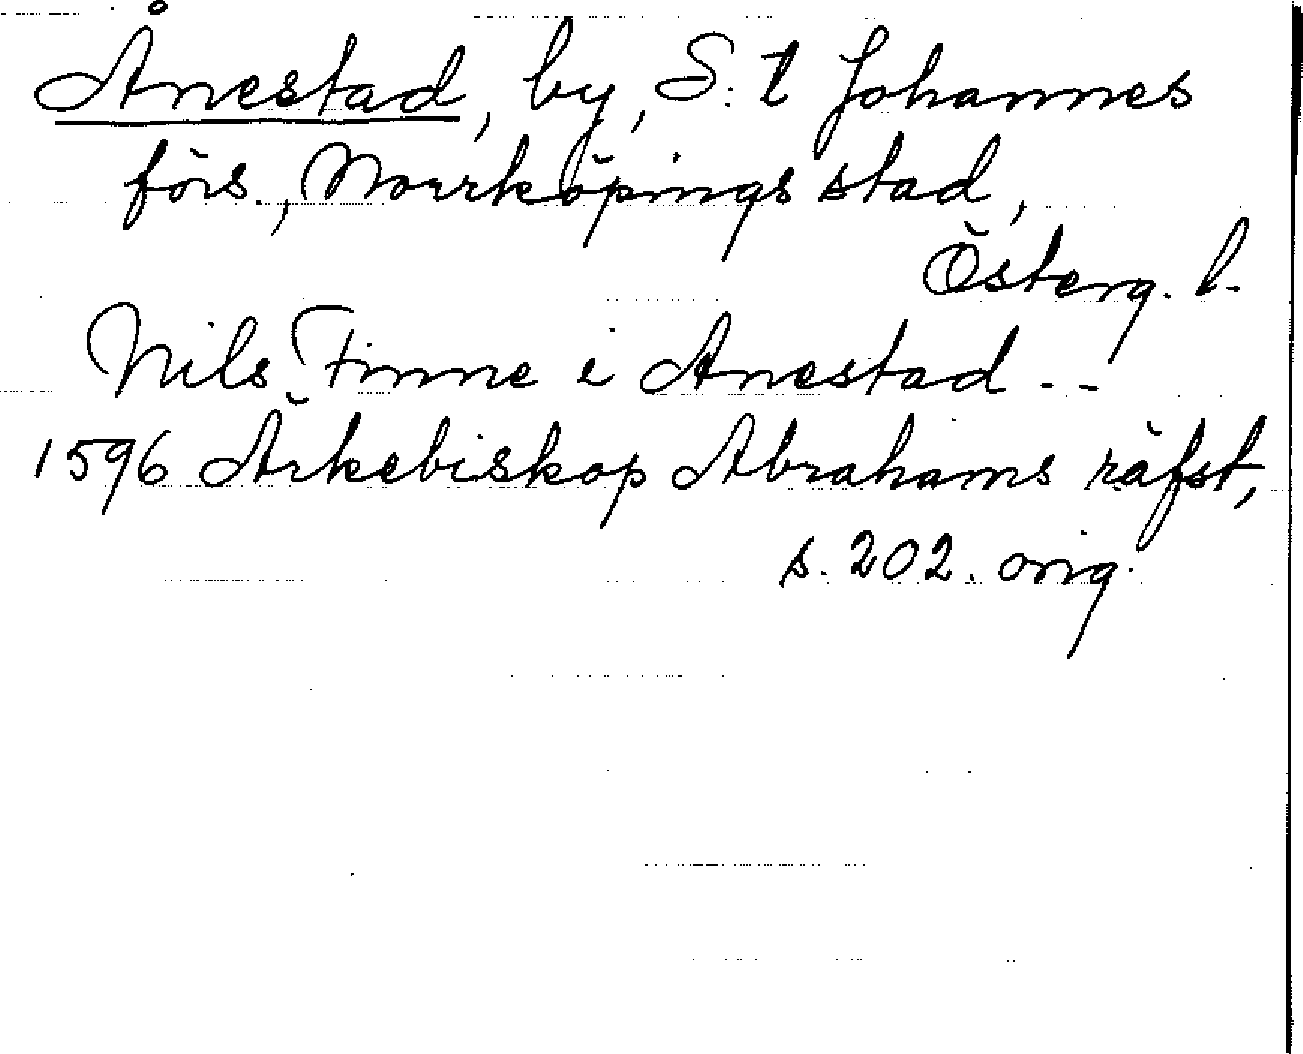 Ånestad, by, S:t Johannes
förs., Norrköpings stad,
Österg. l.
Nils Finne i Anestad - -
1596 Ärkebiskop Abrahams räfst,
s. 202. orig.